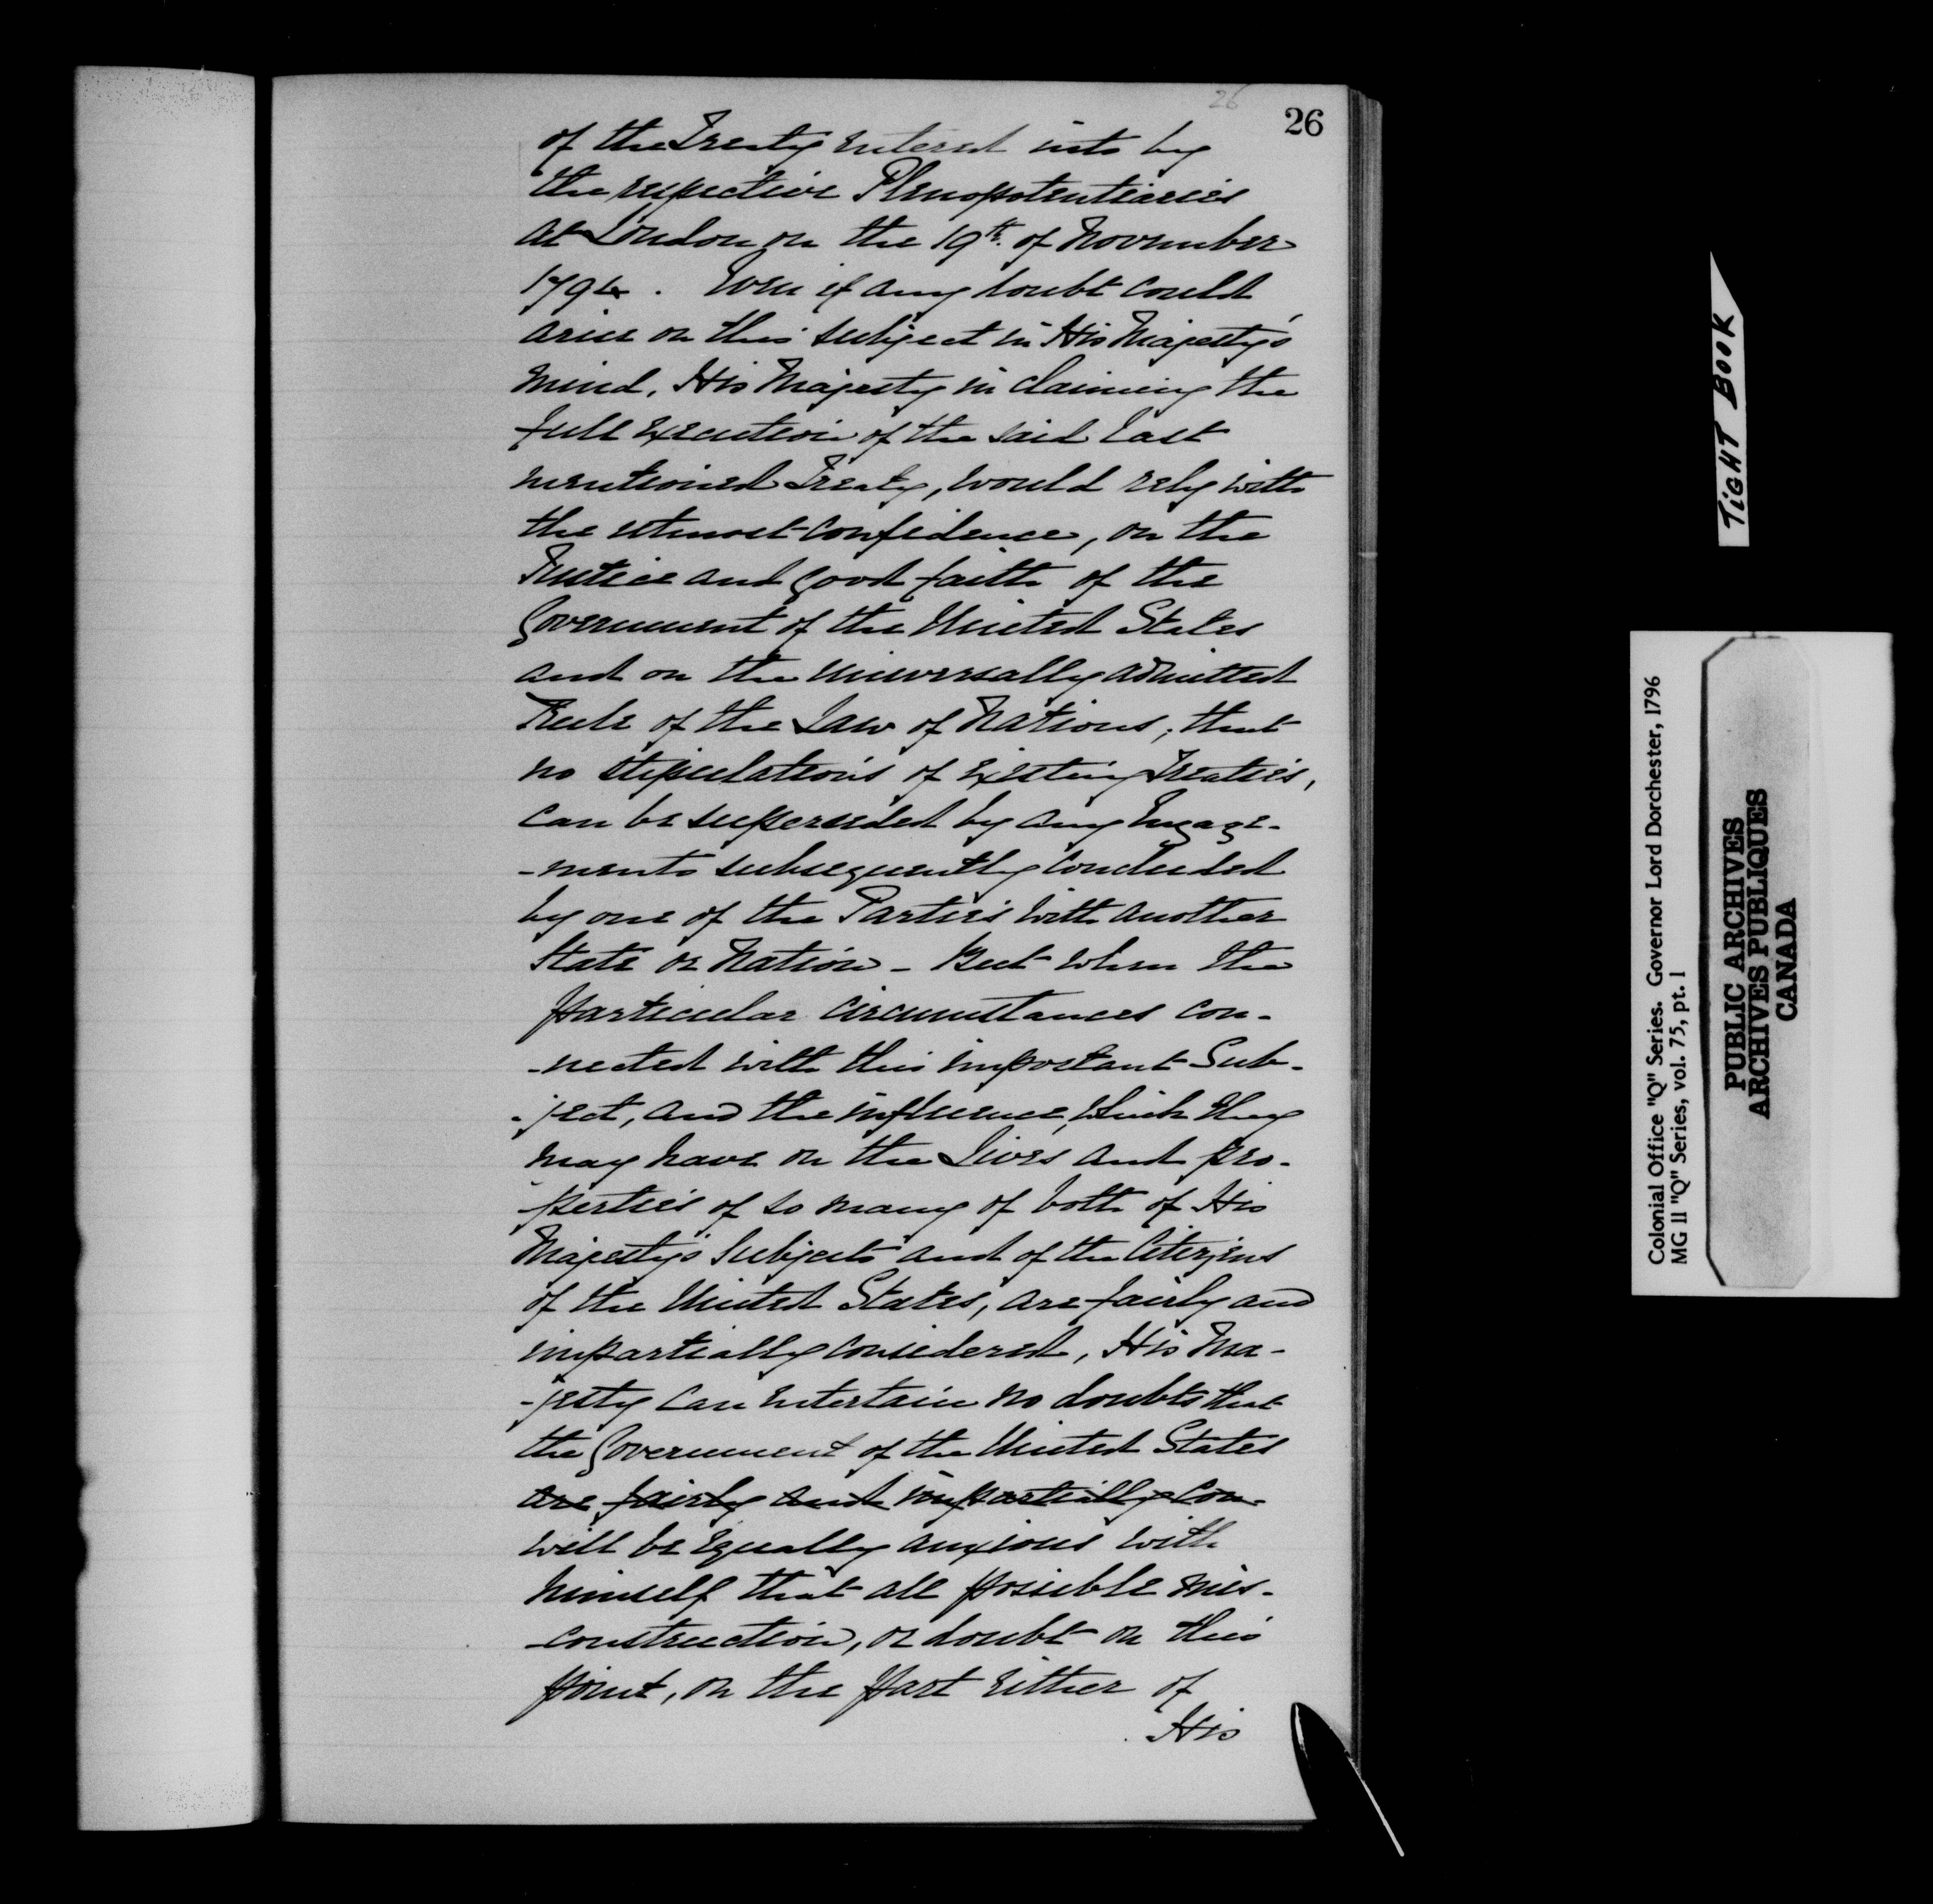 26
26
of the Treaty entered into by
the respective Plenopotentiaries
at London on the 19th. of November
1794. Even if any doubt could
arise on this subject in His Majesty's
mind, His Majesty in claiming the
full execution of the said last
mentioned Treaty, would rely with
the utmost confidence, on the
Justice and good faith of the
Government of the United States
and on the universally admitted
Rule of the Law of Nations; that
no stipulations of existing Treaties,
can be superseded by any Engage-
-ments subsequently concluded
by one of the Parties with another
State or Nation - But when the
particular circumstances con-
-nected with this important Sub-
-ject, and the influence, which they
may have on the Lives and pro-
-perties of so many of both of His
Majesty's Subjects and of the Citizens
of the United States, are fairly and
impartially considered, His Ma-
-jesty can entertain no doubts that
the Government of the United States
are fairly and impartially con-
will be equally anxious with
himself that all possible mis-
-construction, or doubt on this
point, on the part either of
His
TIGHT BOOK
Colonial Office "Q" Series. Governor Lord Dorchester, 1796
MG 11 "Q" Series, vol. 75, pt. 1
PUBLIC ARCHIVES
ARCHIVES PUBLIQUES
CANADA